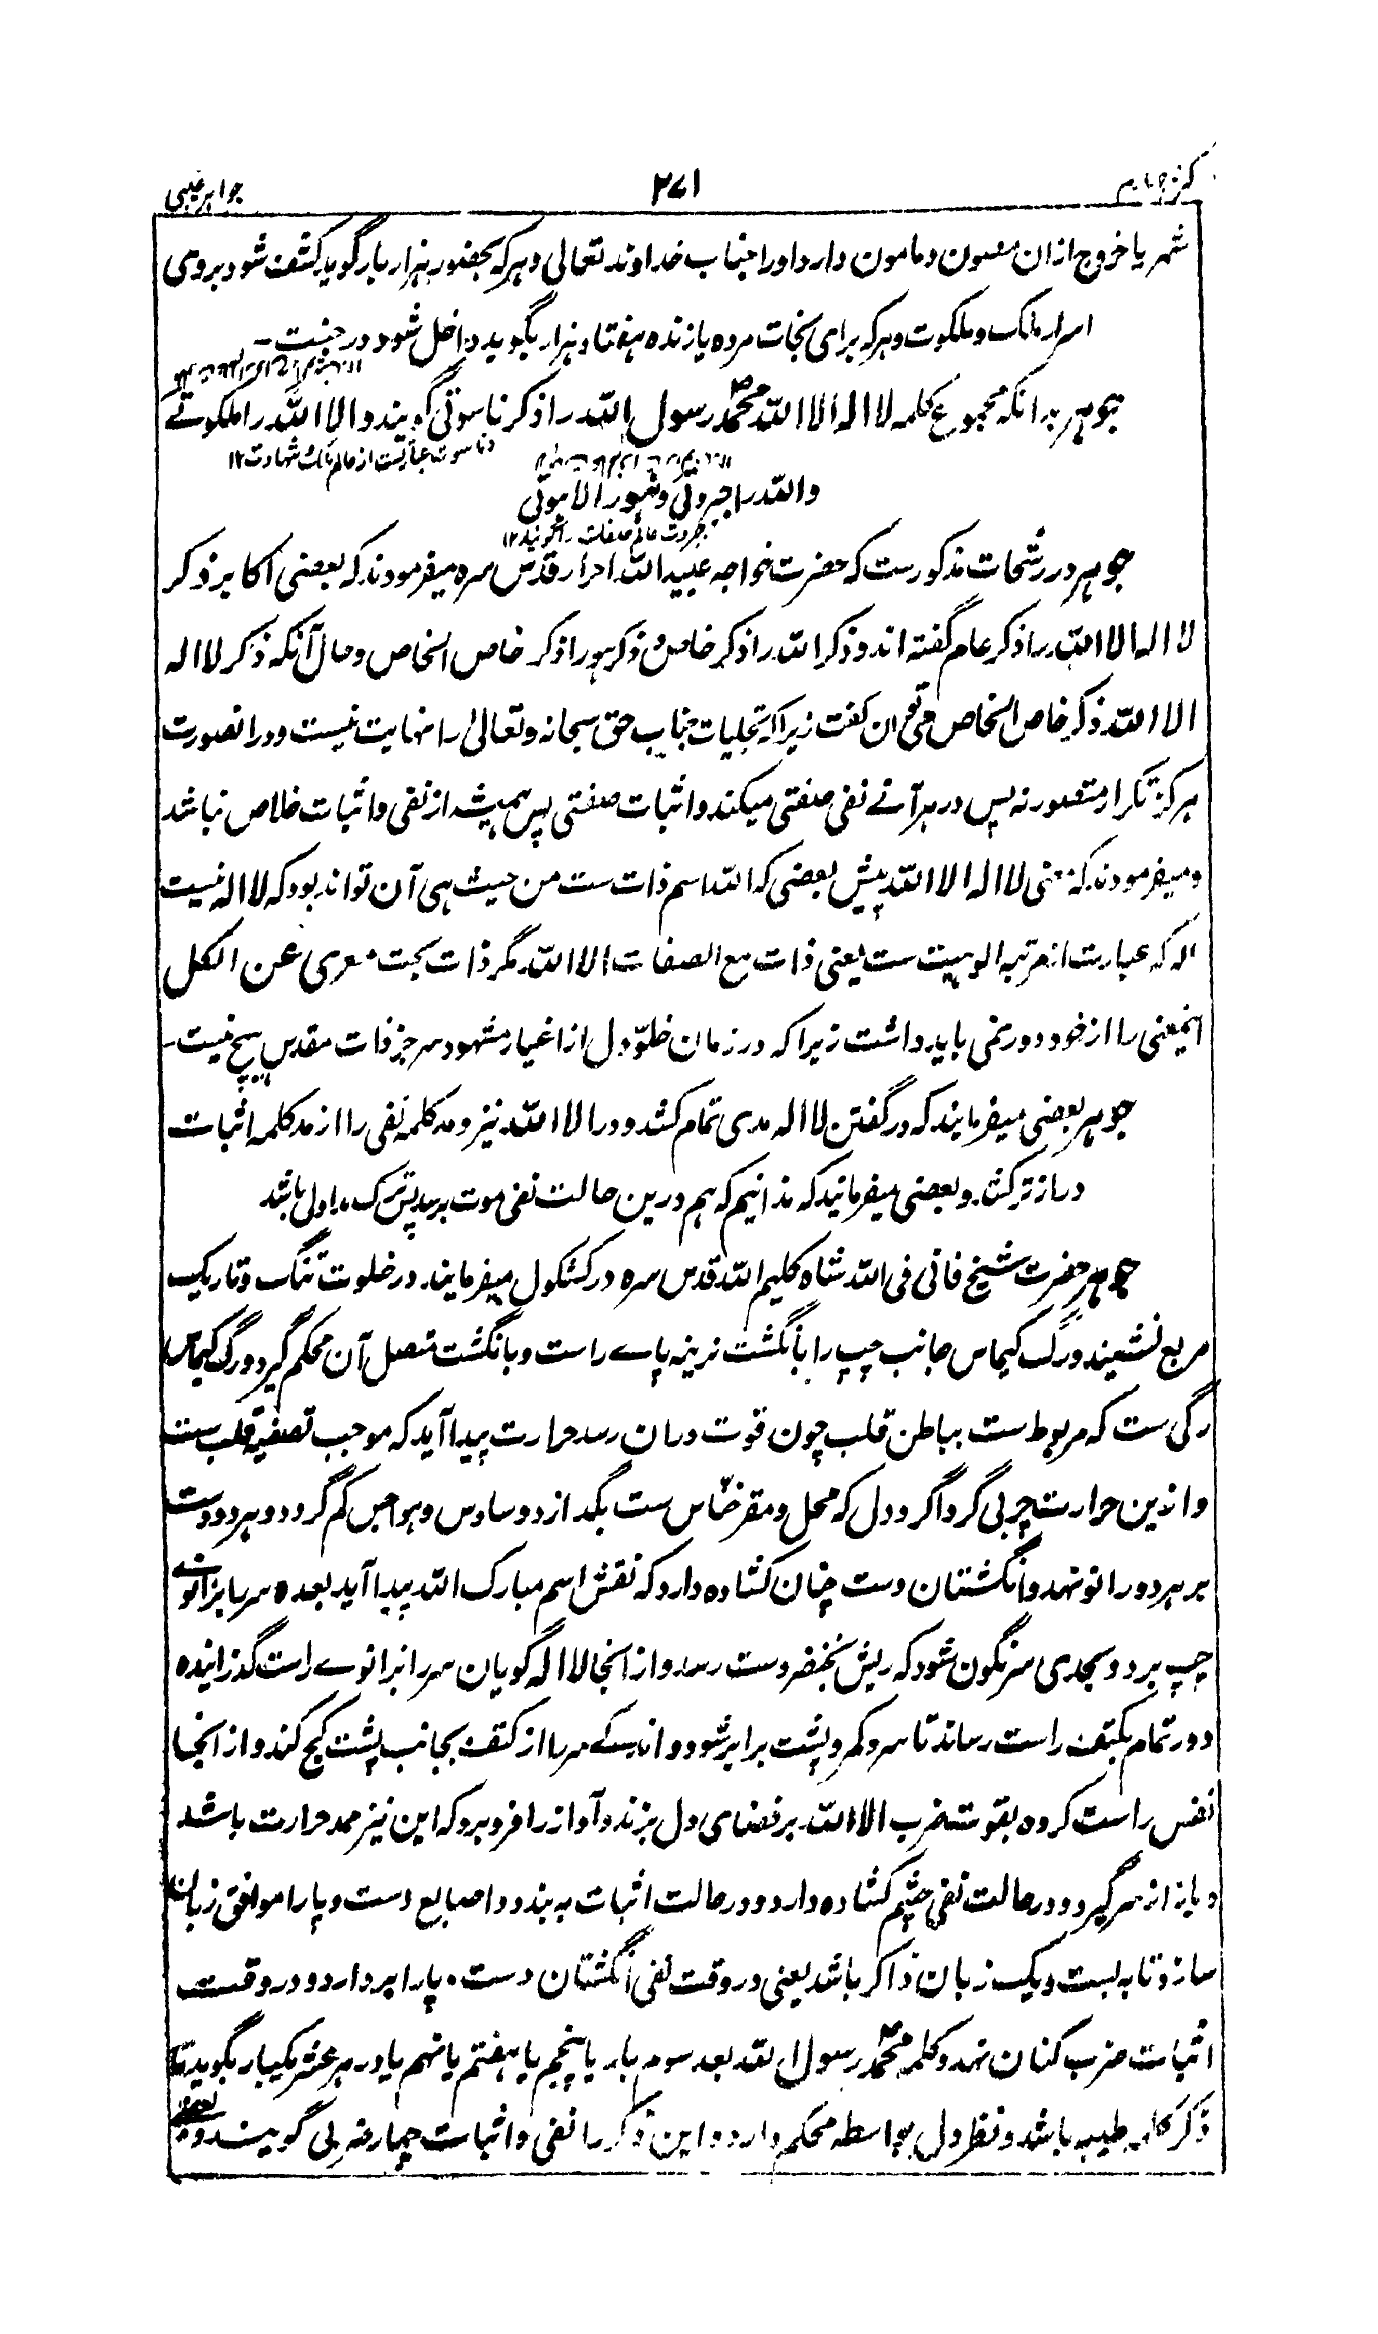 کنز چهارم ۲۷۱ جواهر غیبی
شهر یا خروج ازان مصون و مامون دارد اورا جناب خداوند تعالی و هرکه بحضور هزار بار گوید کشف شود بروی
اسرار ملک و ملکوت و هرکه برای نجات مرده یا زنده هفتاد هزار بگوید داخل شود در جنت –
جوهر بدانکه مجموع کلمه لا اله الا الله محمد رسول الله را ذکر ناسوتی گویند و الا الله را ملکوتے
ناسوت عبارتست از عالم ملک و شهادت ۱۲
والله را جبروتی و هو را لاهوتی
جبروت عالم صفات را گویند ۱۲
جوهر در رشحات مذکورست که حضرت خواجه عبیدالله احرار قدس سره میفرمودند که بعضی اکابر ذکر
لا اله الا الله را ذکر عام گفته اند و ذکر الله را ذکر خاص و ذکر هو را ذکر خاص الخاص و حال آنکه ذکر لا اله
الا الله ذکر خاص الخاص می توان گفت زیرا که تجلیات جناب حق سبحانه و تعالی را نهایت نیست و درانصورت
هرگز تکرار متصور نه پس در هر آنے نفی صفتی میکند و اثبات صفتی پس همیشه از نفی و اثبات خلاص نباشد
و میفرمودند که معنی لا اله الا الله پیش بعضی که الله اسم ذات ست من حیث هی آن تواند بود که لا اله نیست
اله که عبارت از مرتبه الوهیت ست یعنی ذات مع الصفات الا الله مگر ذات بحت معری عن الکل
اینمعنی را از خود دور نمی باید داشت زیرا که در زمان خلو دل از اغیار مشهود سر جز ذات مقدس هیچ نیست –
جوهر بعضی میفرمایند که در گفتن لا اله مدی تمام کشد و در الا الله نیز و مد کلمه نفی را از مد کلمه اثبات
درازتر کشد و بعضی میفرمایند که ندانیم که هم درین حالت نفی موت برسد پس ترک مد اولی باشد
جوهر حضرت شیخ فانی فی الله شاه کلیم الله قدس سره در کشکول میفرمایند در خلوت تنگ و تاریک
مربع نشیند و رگ کیماس جانب چپ را بانگشت نرینه پاے راست و بانگشت متصل آن محکم گیرد و رگ کیماس
رگی ست که مربوط ست بباطن قلب چون قوت دران رسد حرارت پیدا آید که موجب تصفیه قلب ست
و ازین حرارت چربی گرداگرد دل که محل و مقر خناس ست بگدازد و ساوس و هواجس کم گردد و هر دو دست
بر هر دو زانو نهد و انگشتان دست چنان کشاده دارد که نقش اسم مبارک الله پیدا آید بعده سر با زانوے
چپ برد و بحدی سرنگون شود که ریش بخنضر دست رسد و از انجا لا اله گویان سر را بزانوے راست گذرانیده
دور تمام بکتف راست رساند تا سر و کمر و پشت برابر شود و اندکے سر را از کتف بجانب پشت کج کند و از انجا
نفس راست کرده بقوت ضرب الا الله بر فضای دل بزند و آواز را فرو برد که این نیز ممد حرارت باشد
و باز از سر گیرد و در حالت نفی چشم کشاده دارد و در حالت اثبات به بندد و اصابع دست و پا را موافق زبان
سازد تا به بست و یک زبان ذاکر باشد یعنی در وقت نفی انگشتان دست و پا را بردارد و در وقت
اثبات ضرب کنان نهد و کلمه محمد رسول الله بعد سوم بار یا پنجم یا هفتم یا نهم یا در هر عشر یکبار بگوید تا
ذکر کلمه طیبه باشد و نظر دل بواسطه محکم دارد و این ذکر را نفی و اثبات چهار ضربی گویند و بعضے